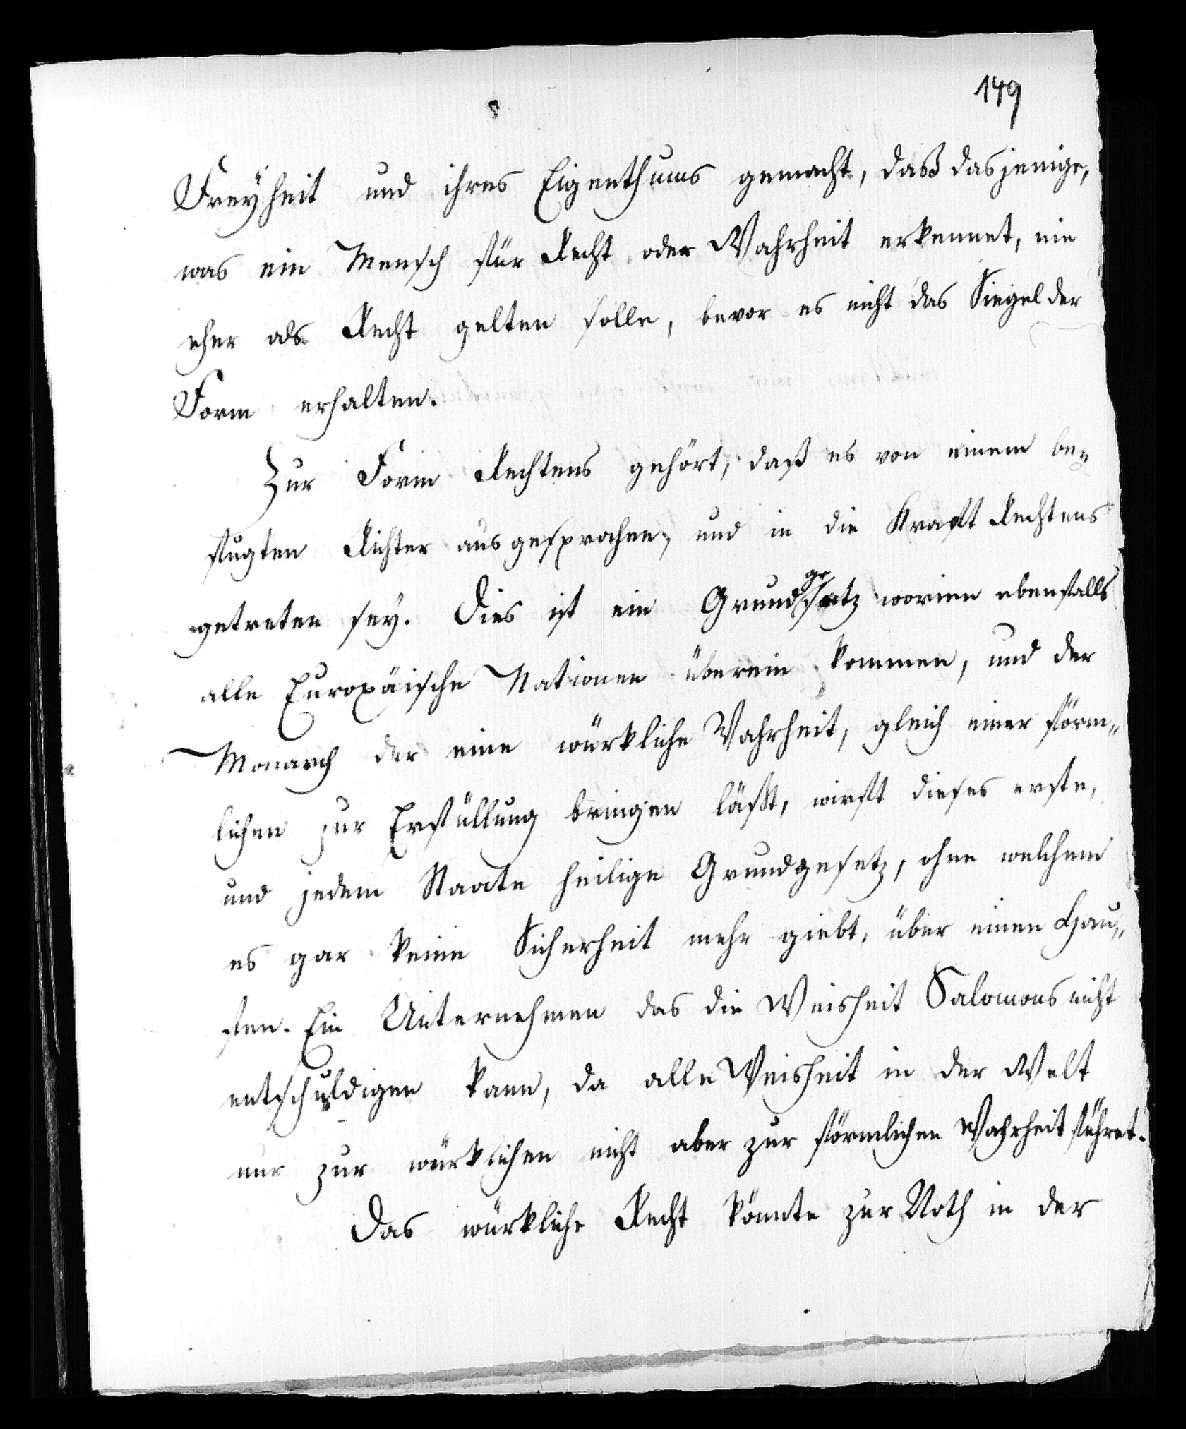 149
Freyheit und ihres Eigenthums gemacht, daß dasjenige,
was ein Mensch für Recht oder Wahrheit erkennet, nie
eher als Recht gelten solle, bevor es nicht das Siegel der
Form erhalten.
Zur Form Rechtens gehört, daß es von einem be-
fugten Richter ausgesprochen, und in die Kraft Rechtens
getreten sey. Dies ist ein Grundgesatz worinn ebenfalls
alle Europäische Nationen überein kommen, und der
Monarch der eine würkliche Wahrheit, gleich einer förm„
lichen zur Erfüllung bringen läßt, wirft dieses erste,
und jedem Staate heilige Grundgesetz, ohne welchem
es gar keine Sicherheit mehr giebt, über einen Hau„
fen. Ein Unternehmen das die Weisheit Salomons nicht
entschuldigen kann, da alle Weisheit in der Welt
nur zur würklichen nicht aber zur förmlichen Wahrheit führet.
Das würkliche Recht könnte zur Noth in der